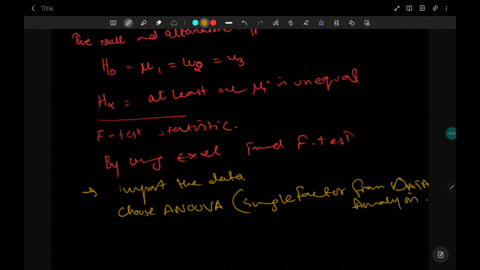 Title
The null and alternative
H₀ = μ₁ = μ₂ = μ₃
Hα = at least one μᵢ is unequal
F-test statistic.
By using Excel find F-test
→ import the data
choose ANOOVA (single factor from DATA
Analysis.